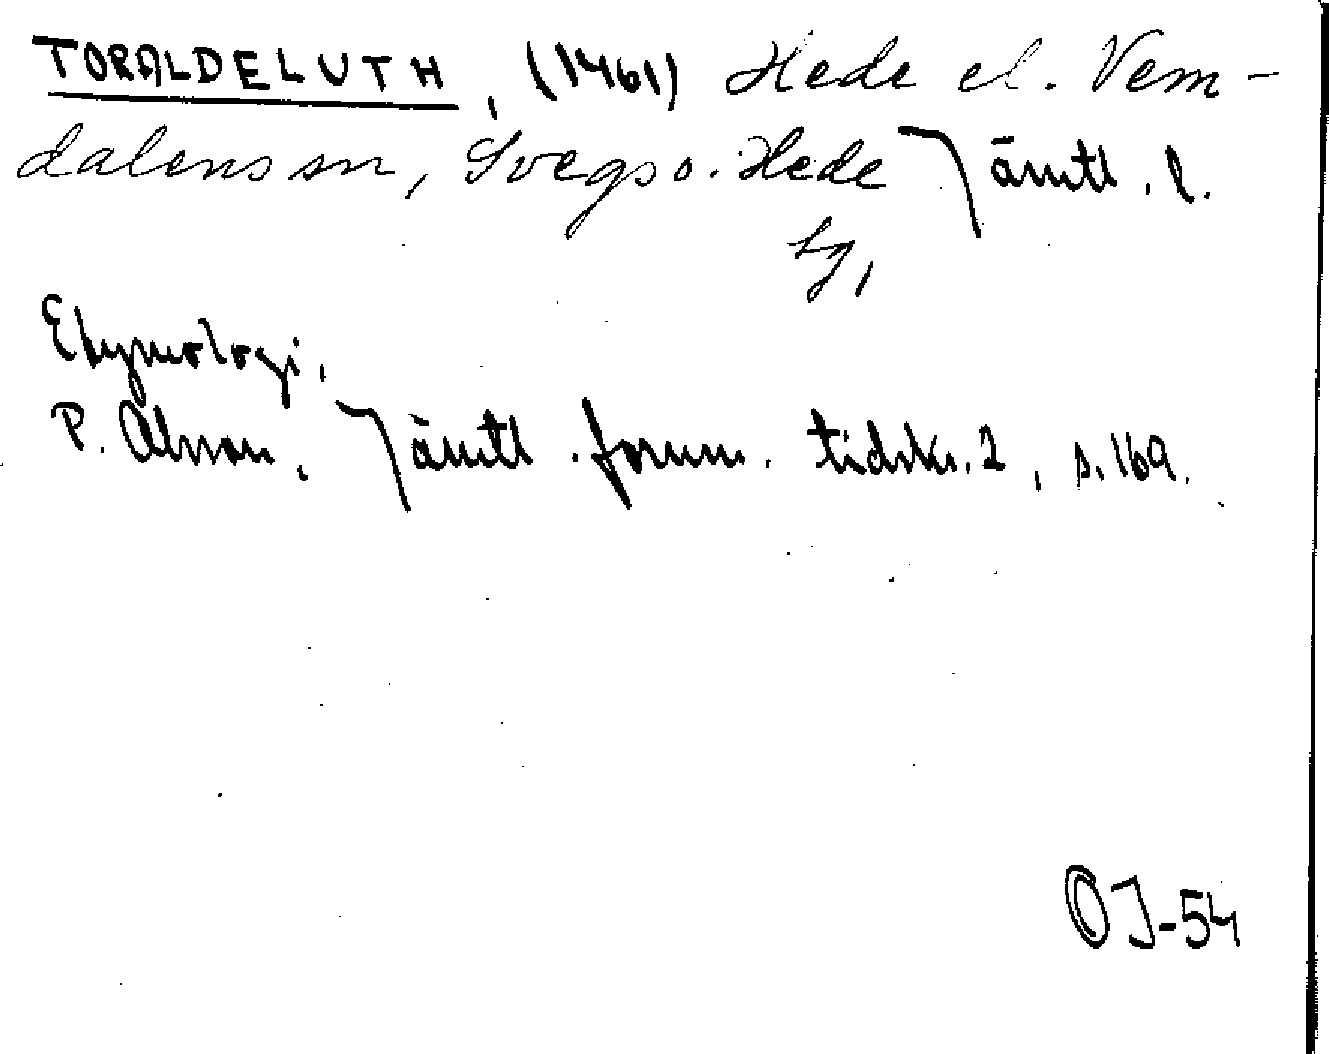 TORALDELUTH, (1461) Hede el. Vem-
dalens sn, Svegs o. Hede Jämtl. l.
tg,
Etymologi.
P. Olsson. Jämtl. fornm. tidskr. 2, s. 169.
OJ-54